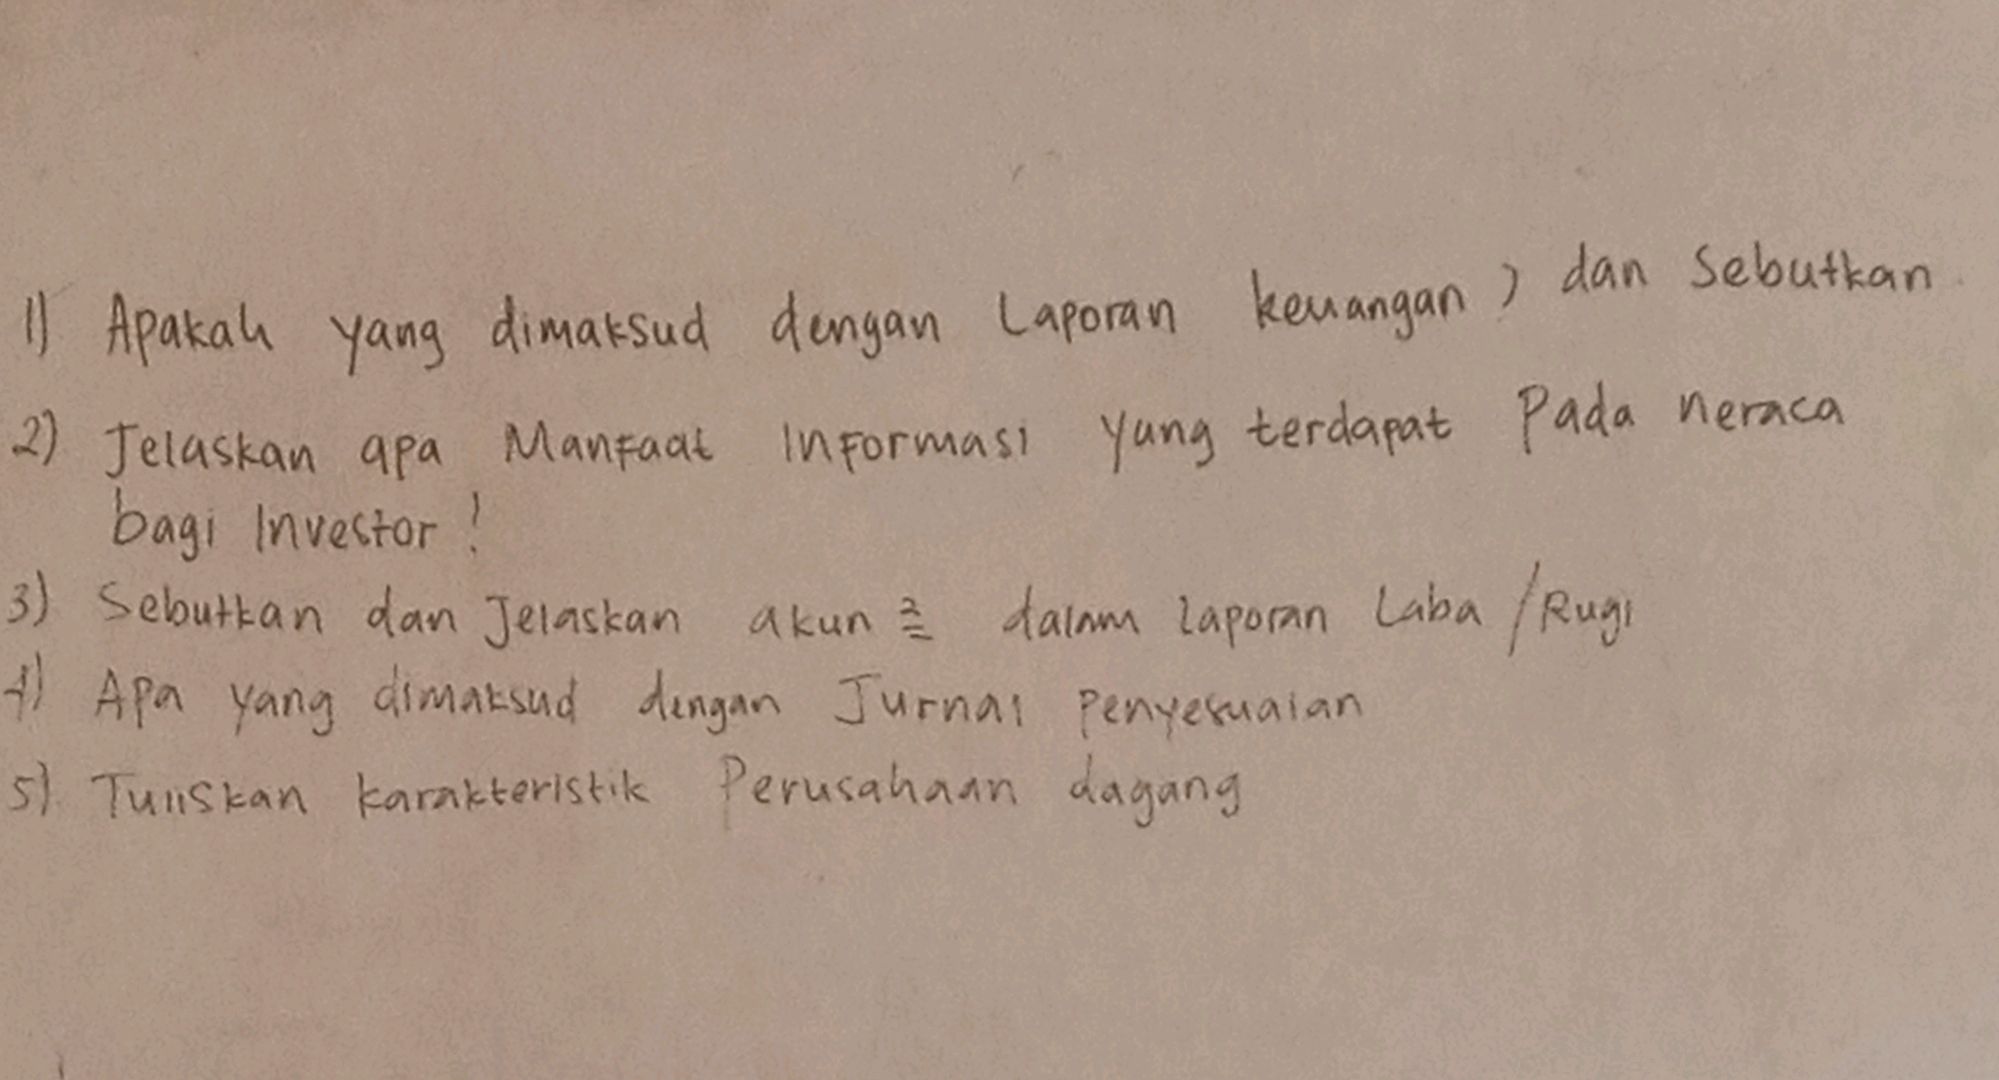 1) Apakah yang dimaksud dengan Laporan keuangan, dan Sebutkan
2) Jelaskan apa Manfaat Informasi yang terdapat Pada neraca
bagi Investor!
3) Sebutkan dan Jelaskan akun 2 dalam laporan Laba/Rugi
4) Apa yang dimaksud dengan Jurnal penyesuaian
5) Tuliskan karakteristik Perusahaan dagang